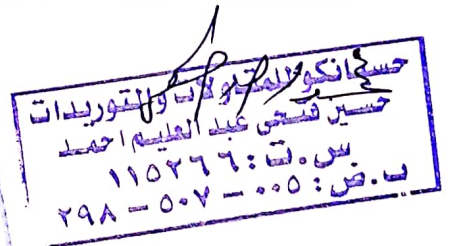 حسانكو للمقاولات والتوريدات
حسين فتحى عبد العليم احمد
س.ت: ١١٥٢٦٦
ب.ض: ٠٠٥ - ٥٠٧ - ٢٩٨